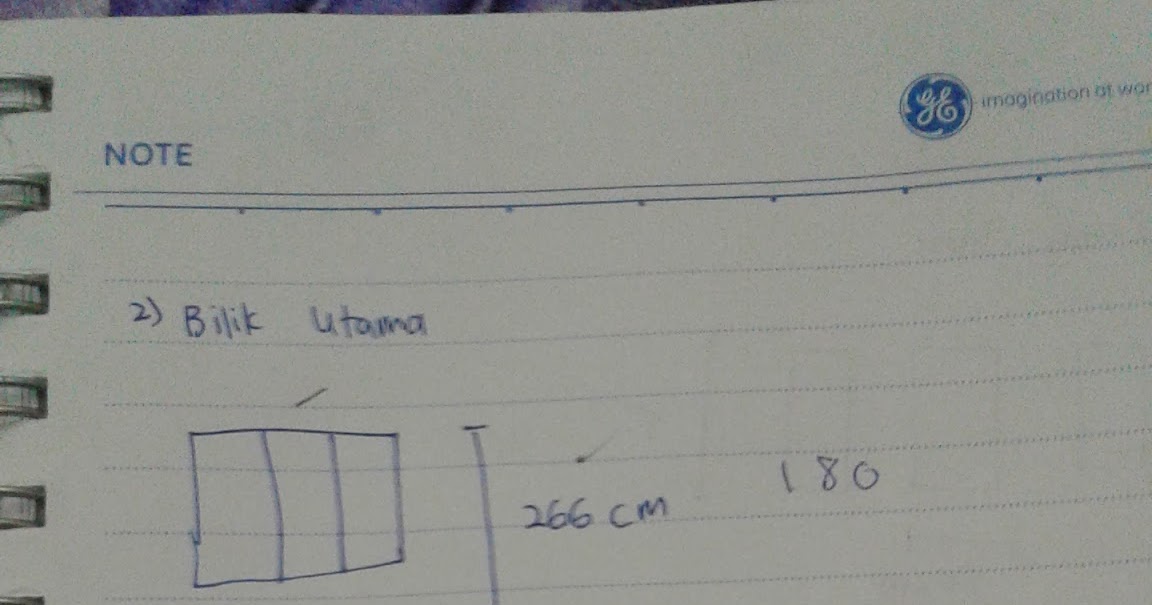 GE imagination at wor
NOTE
2) Bilik Utama
266 cm
180